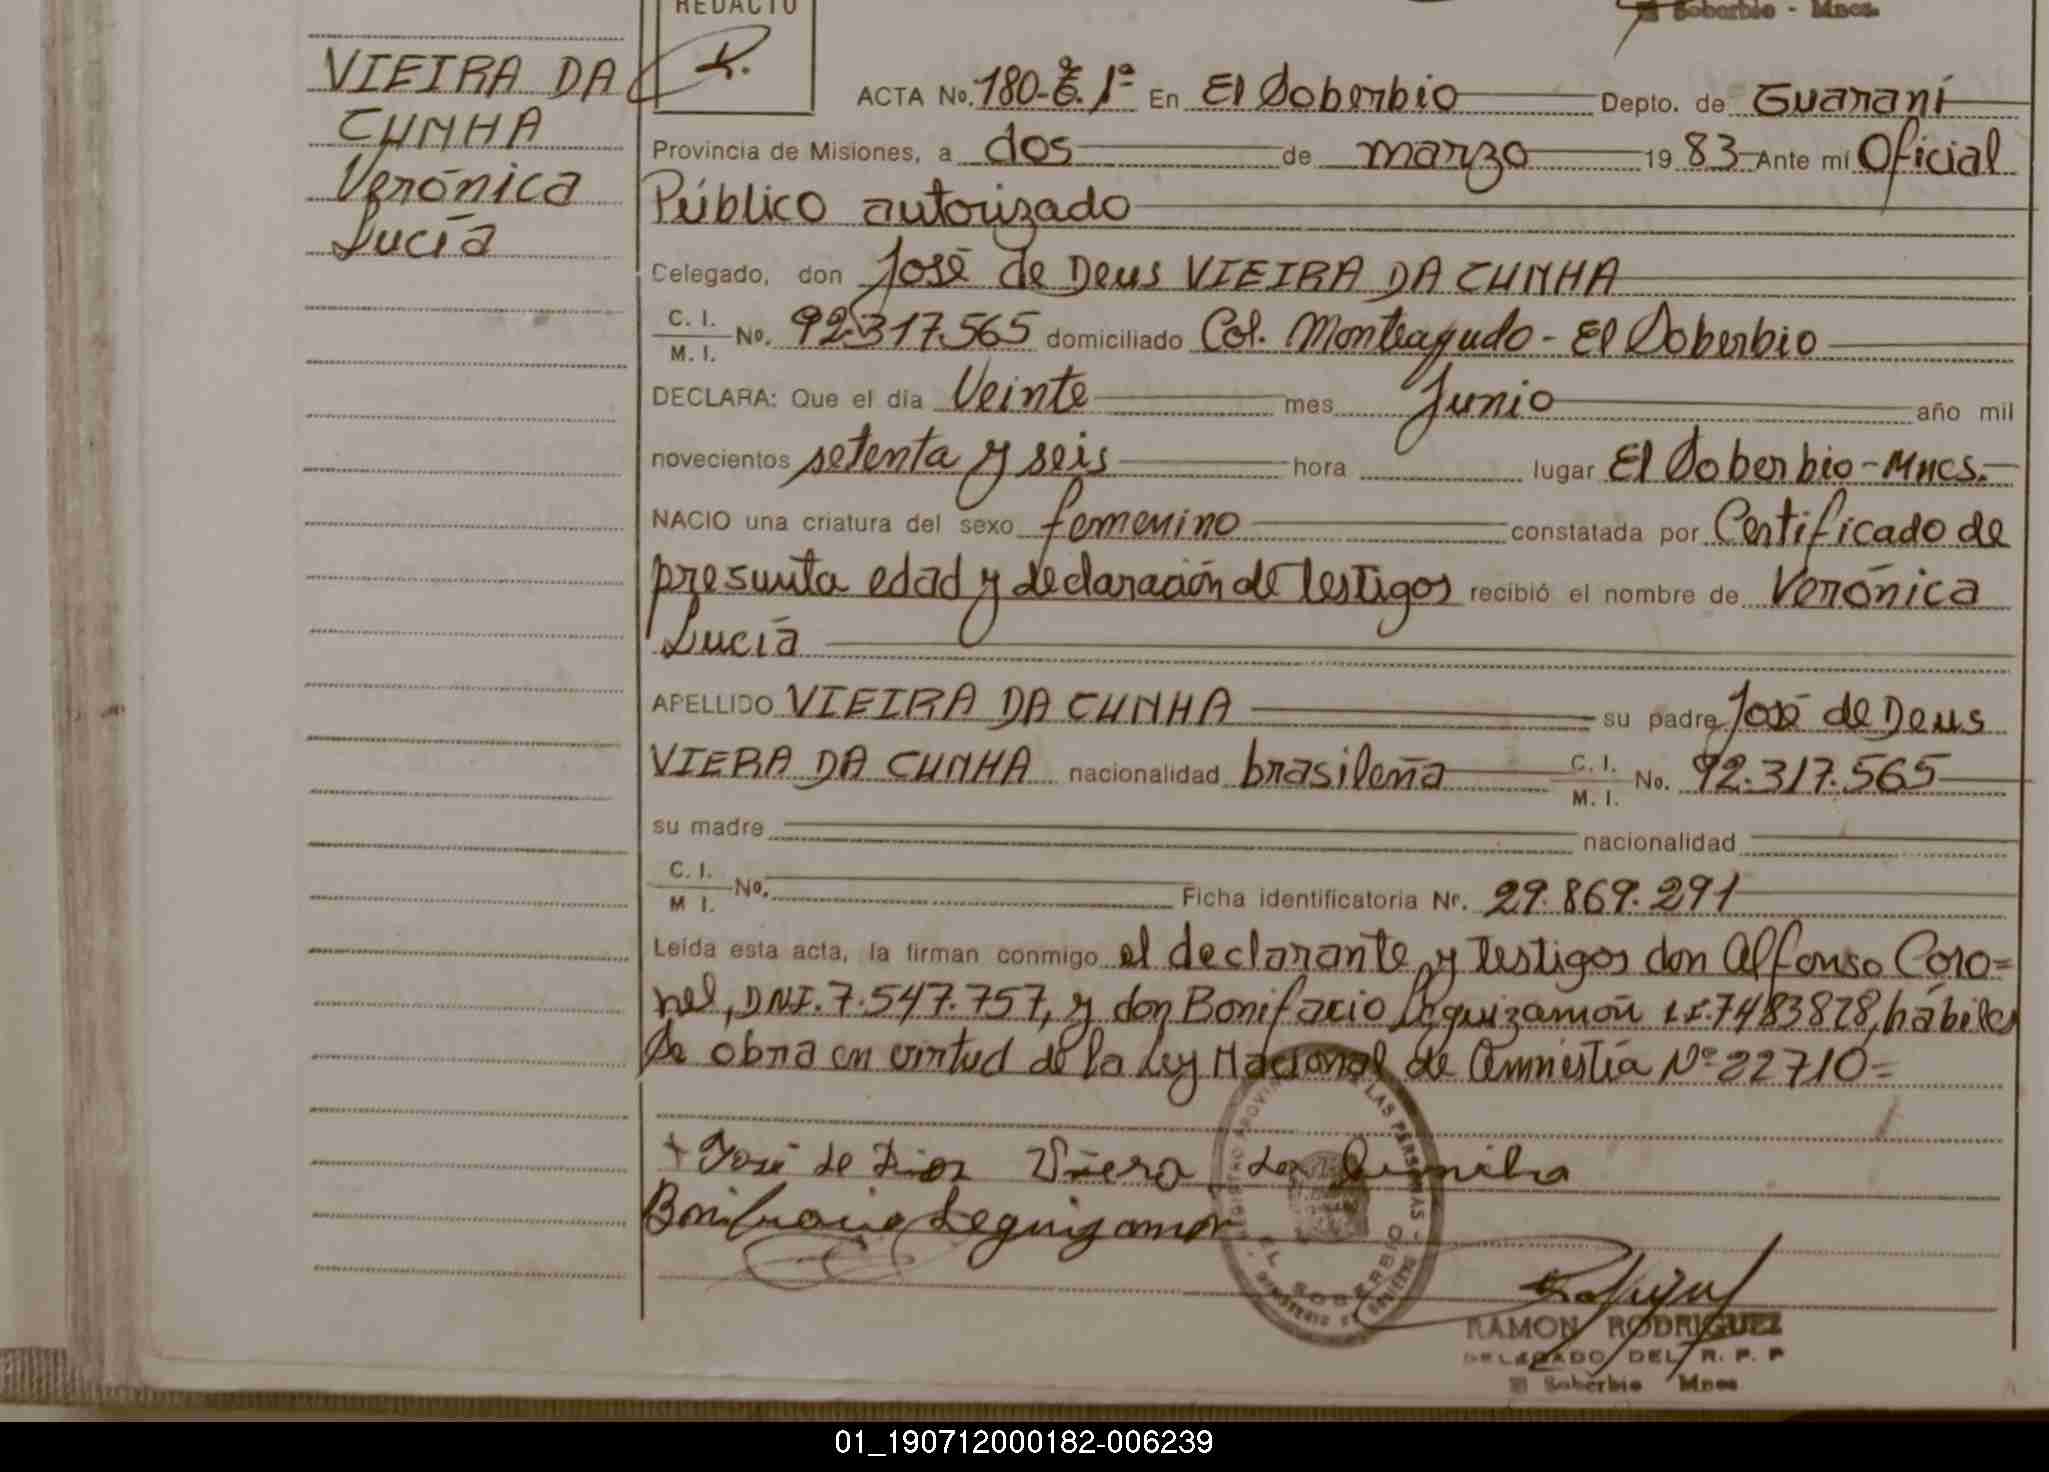 REDACTO
El Soberbio - Mnes.
VIEIRA DA
CUNHA
Verónica
Lucía
ACTA No. 180-T. 1º En El Soberbio Depto. de Guaraní
Provincia de Misiones, a dos de marzo 19 83 Ante mí Oficial
Público autorizado
Celegado, don José de Deus VIEIRA DA CUNHA
C. I.
M. I. No. 92.317.565 domiciliado Col. Monteagudo - El Soberbio
DECLARA: Que el día Veinte mes Junio año mil
novecientos setenta y seis hora lugar El Soberbio-Mnes.
NACIO una criatura del sexo femenino constatada por Certificado de
presunta edad y declaración de testigos recibió el nombre de Verónica
Lucía
APELLIDO VIEIRA DA CUNHA su padre José de Deus
VIERA DA CUNHA nacionalidad brasileña C. I. M. I. No. 92.317.565
su madre nacionalidad
C. I.
M I. No. Ficha identificatoria Nr. 29.869.291
Leída esta acta, la firman conmigo el declarante y testigos don Alfonso Coro=
nel, DNI. 7.547.757, y don Bonifacio Leguizamón L.E. 7483828, hábiles
Se obra en virtud de la Ley Nacional de Amnistía Nº 22710=
José de Dios Viera da Cunha
Bonifacio Leguizamon
EL SOBERBIO
RAMON RODRIGUEZ
DELEGADO DEL R. P. P
El Soberbio Mnes
01_190712000182-006239